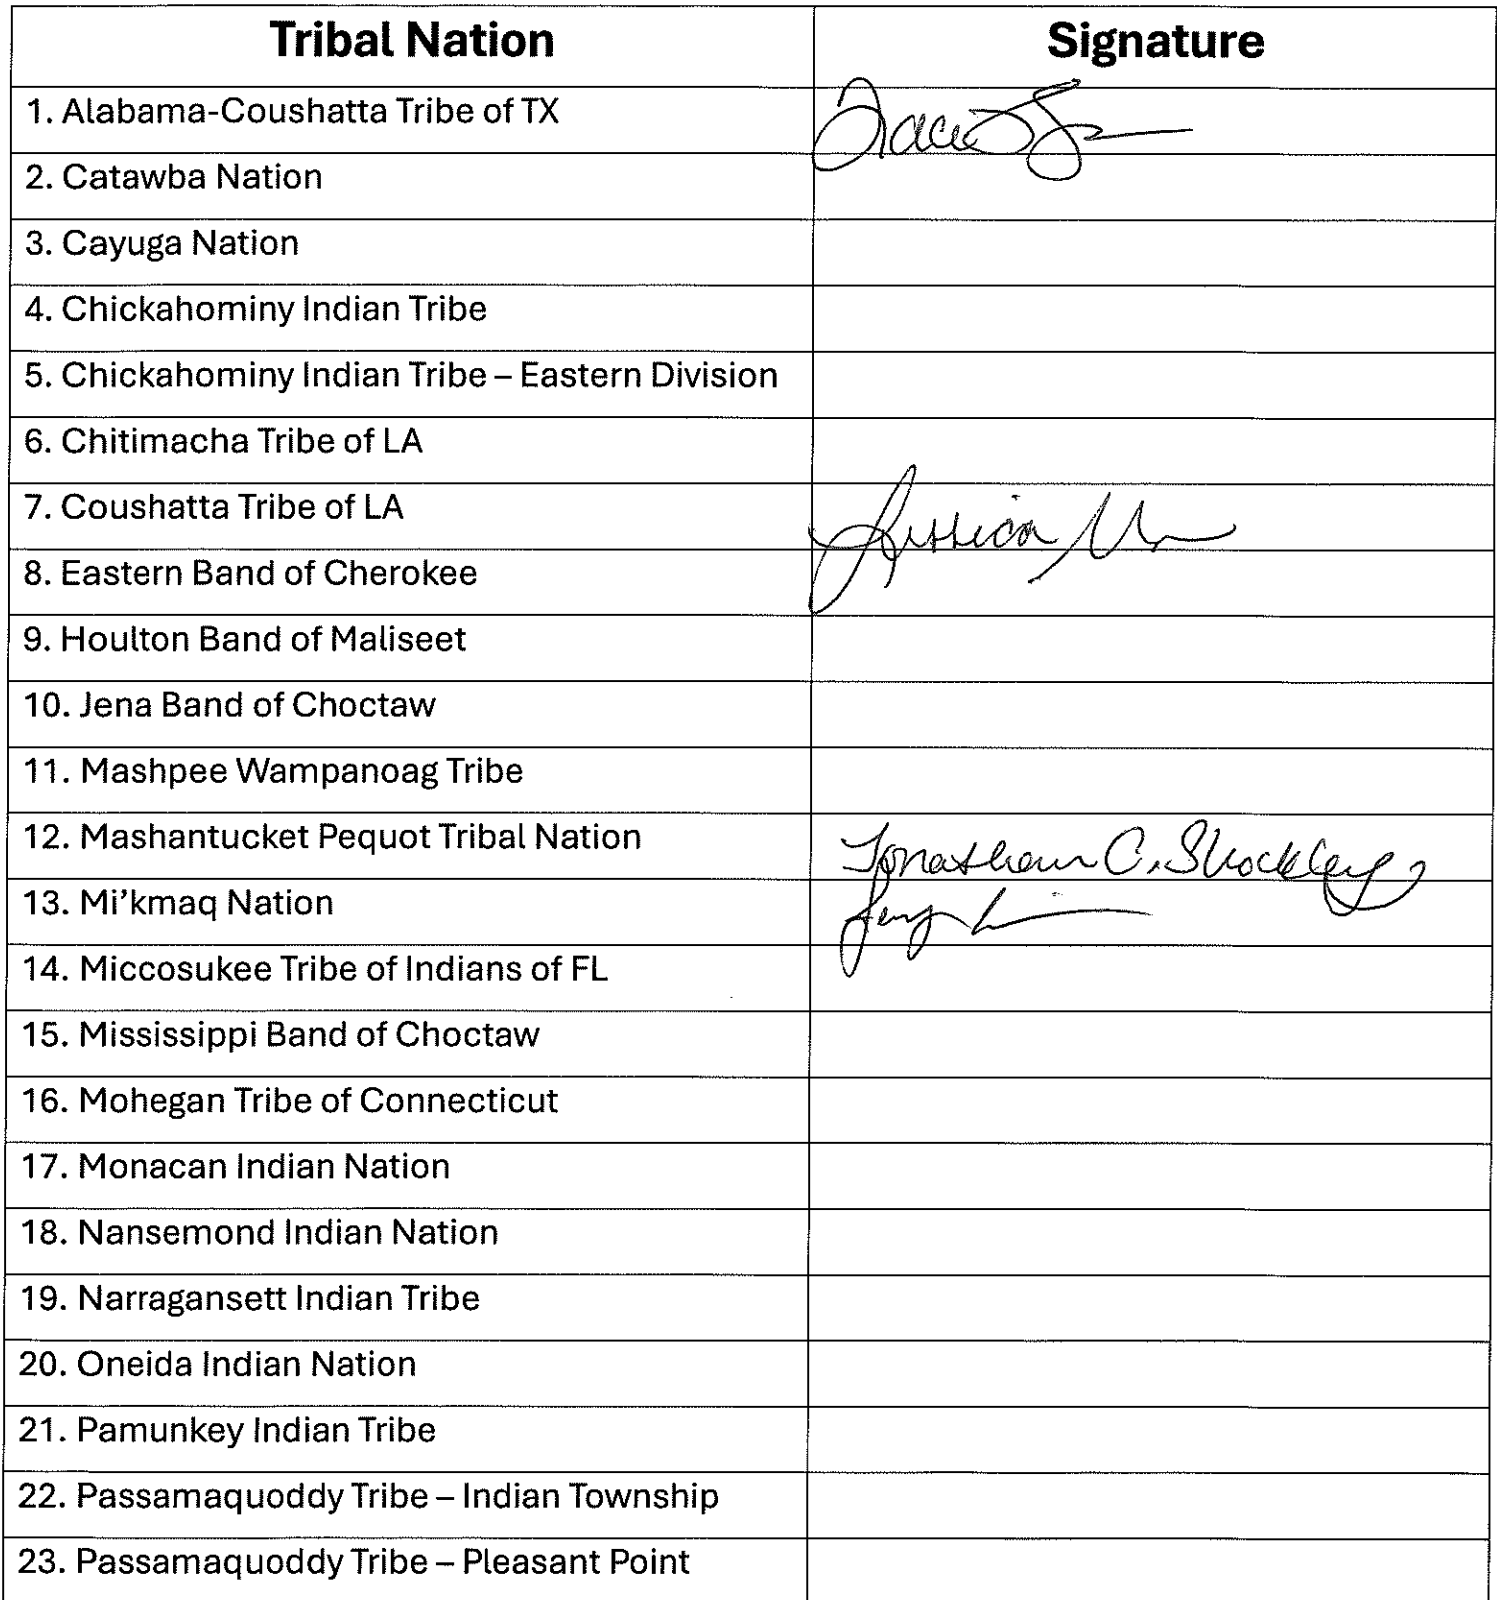 Tribal Nation Signature
1. Alabama-Coushatta Tribe of TX
2. Catawba Nation
3. Cayuga Nation
4. Chickahominy Indian Tribe
5. Chickahominy Indian Tribe – Eastern Division
6. Chitimacha Tribe of LA
7. Coushatta Tribe of LA
8. Eastern Band of Cherokee
9. Houlton Band of Maliseet
10. Jena Band of Choctaw
11. Mashpee Wampanoag Tribe
12. Mashantucket Pequot Tribal Nation Jonathan C. Shockley
13. Mi’kmaq Nation
14. Miccosukee Tribe of Indians of FL
15. Mississippi Band of Choctaw
16. Mohegan Tribe of Connecticut
17. Monacan Indian Nation
18. Nansemond Indian Nation
19. Narragansett Indian Tribe
20. Oneida Indian Nation
21. Pamunkey Indian Tribe
22. Passamaquoddy Tribe – Indian Township
23. Passamaquoddy Tribe – Pleasant Point